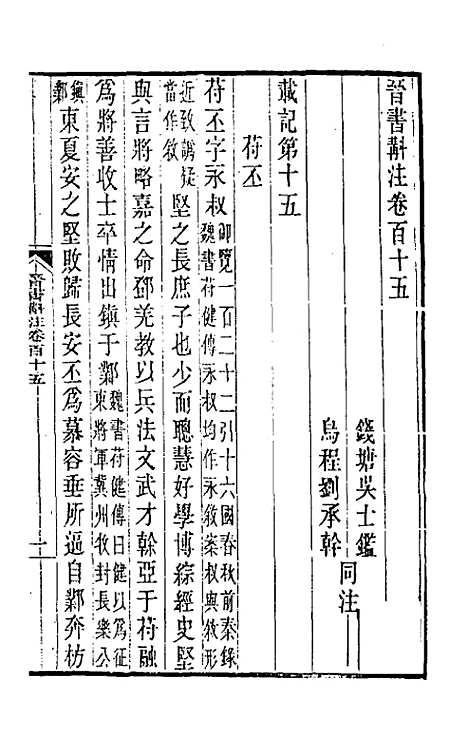 晉書斠注卷百十五
錢塘吳士鑑
烏程劉承幹
同注
載記第十五
苻丕
苻丕字永叔御覽一百二十二引十六國春秋前秦錄
魏書苻健傳永叔均作永敘案叔與敘形
近致譌疑
當作敘
堅之長庶子也少而聰慧好學博綜經史堅
與言將略嘉之命鄧羌教以兵法文武才幹亞于苻融
為將善收士卒情出鎮于鄴魏書苻健傳曰健以為征
東將軍冀州牧封長樂公
鎮
鄴
東夏安之堅敗歸長安丕為慕容垂所逼自鄴奔枋
晉書斠注卷百十五
一